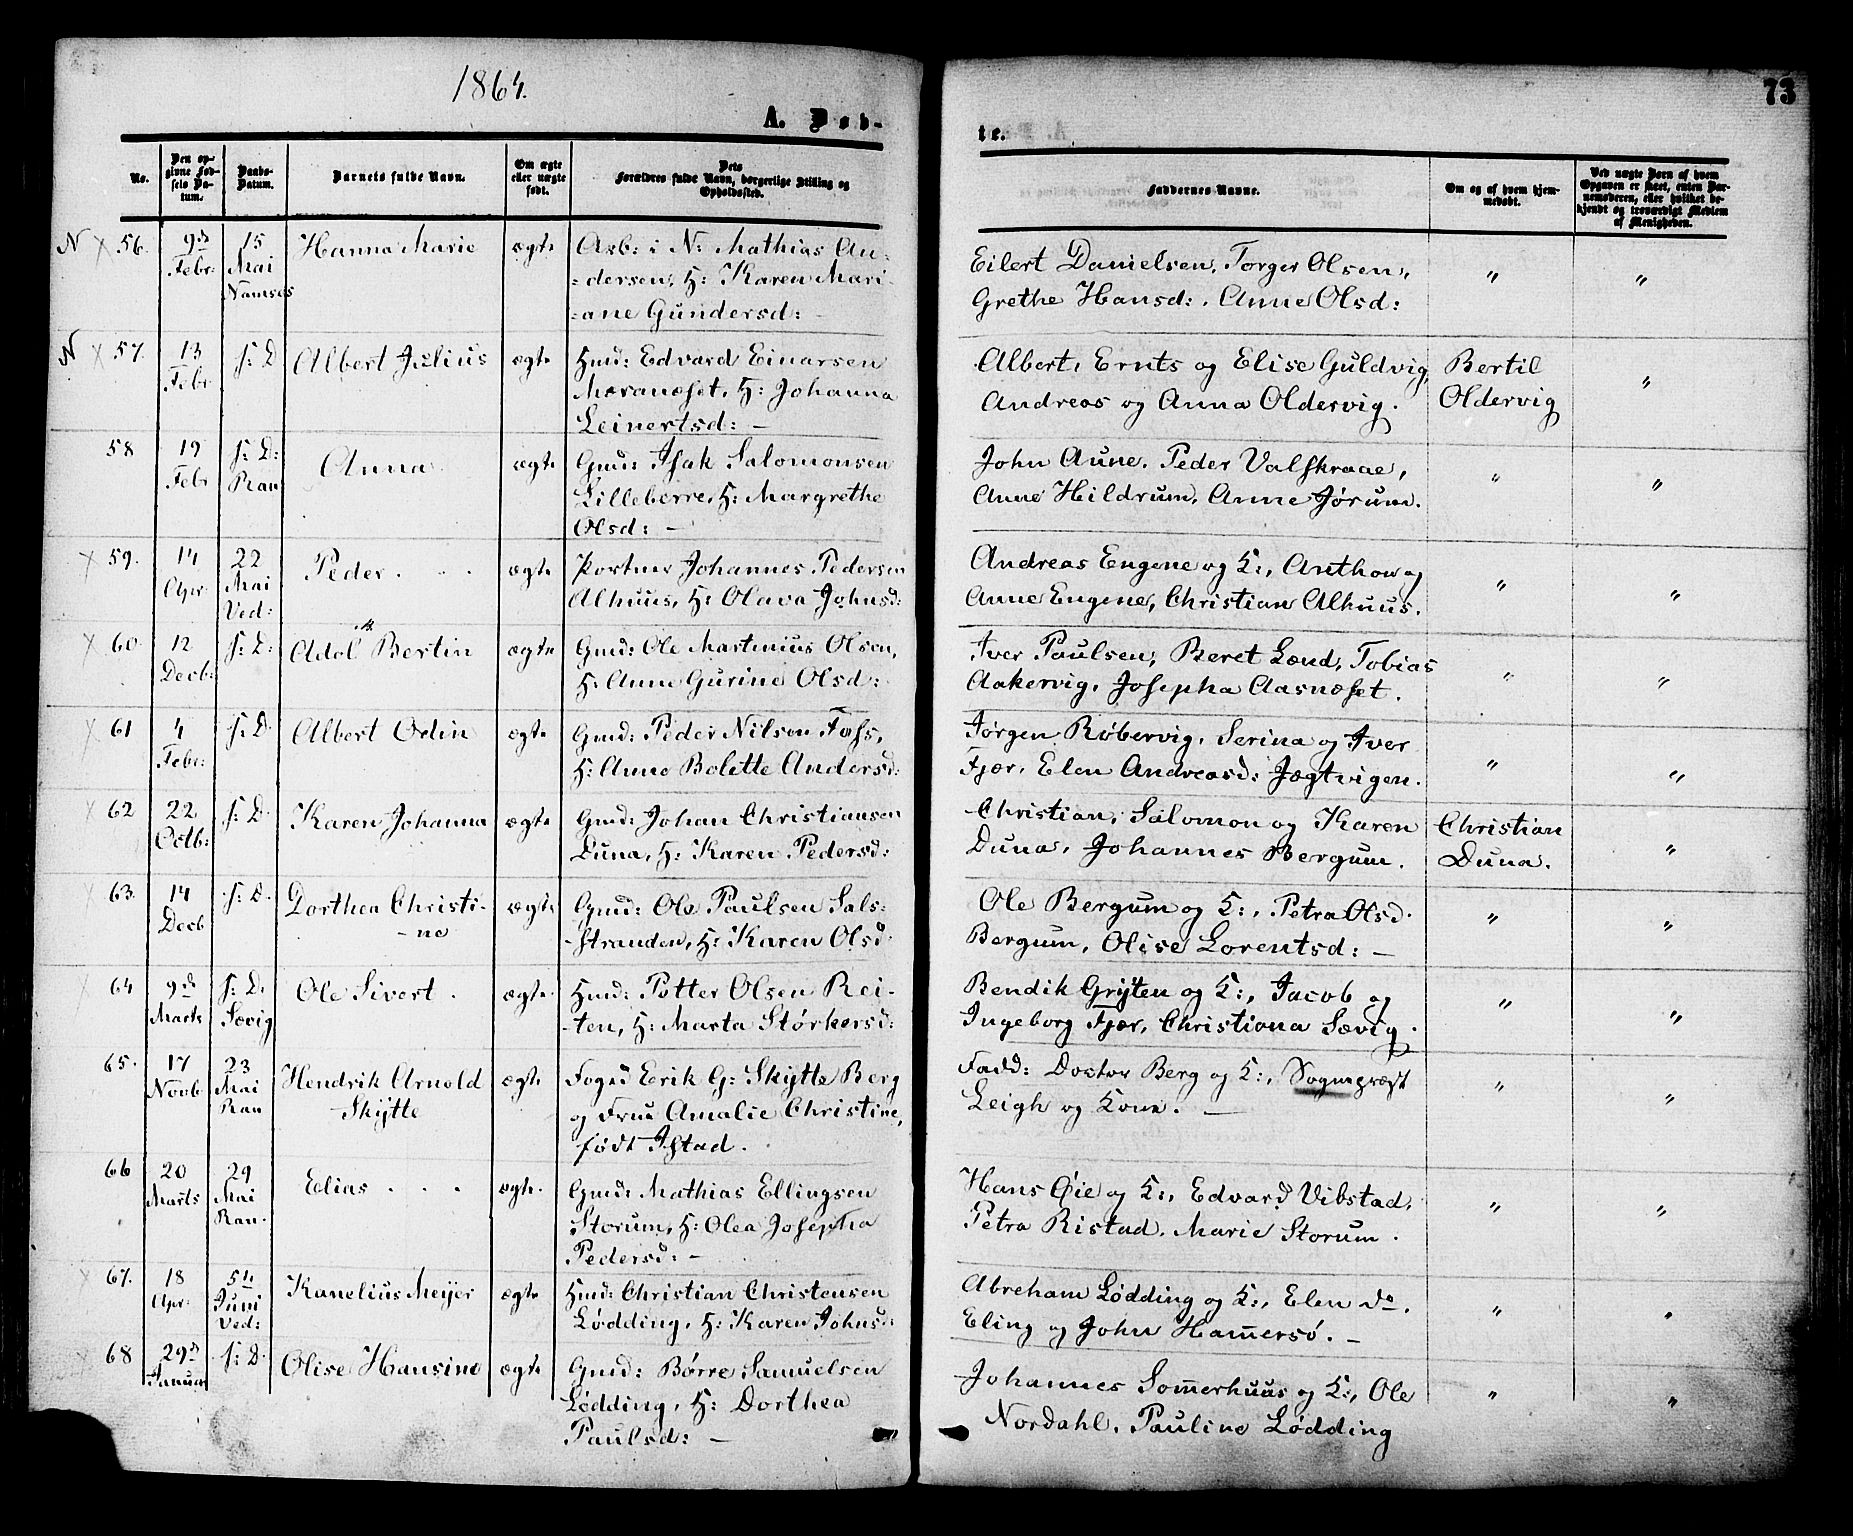 1864.
73
A. Døb-
te.
No.
Den op-
givne Fød-
sels Da-
tum.
Daabs-
Datum.
Barnets fulde Navn.
Om ægte
eller uægte
født.
Dets
Forældres fulde Navn, borgerlige Stilling og
Opholdssted.
Faddernes Navne.
Om og af hvem hjem-
medøbt.
Ved uægte Børn af hvem
Opgaven er skeet, enten Bar-
nemoderen, eller hvilket be-
kjendt og troværdigt Medlem
af Menigheden.
N × 56. 9de Febr: 15 Mai Namsos Hanna Marie ægte Arb: i N: Mathias An-
=dersen, H: Karen Mari-
=ane Gundersd: -
Eilert Danielsen, Torger Olsen,
Grethe Hansd:, Anne Olsd:
" "
N × 57. 13 Febr s: D Albert Julius ægte Hmd: Edvard Einarsen
Mæranæset, H: Johanna
Leinertsd: -
Albert, Ernts og Elise Guldvig,
Andreas og Anna Oldervig.
Bertil
Oldervig
"
58 19 Febr s: D: Ran Anna ægte Gmd: Isak Salomonsen
Lilleberre, H: Margrethe
Olsd: -
John Aune, Peder Valskraae,
Anne Hildrum, Anne Jørum.
" "
× 59. 14 Apr: 22 Mai Ved: Peder . . . ægte Portner Johannes Pedersen
Alhuus, H: Olava Johnsd:
Andreas Engene og K:, Anthon og
Anne Engene, Christian Alhuus.
" "
× 60. 12 Decb: s: D: Adol Bertin ægte Gmd: Ole Martinius Olsen,
H: Anne Gurine Olsd:
Iver Paulsen, Beret Lænd, Tobias
Aakervig, Josepha Aasnæset.
" "
× 61 4 Febr: s: D. Albert Odin ægte Gmd: Peder Nilsen Fass,
H: Anne Bolette Andersd:
Jørgen Røbervig, Serina og Iver
Fjær, Elen Andreasd: Jægtvigen.
" "
× 62 22 Octb: s: D. Karen Johanna ægte Gmd: Johan Christiansen
Duna, H: Karen Pedersd:
Christian, Salomon og Karen
Duna, Johannes Bergum.
Christian
Duna.
"
63. 14 Decb s: D. Dorthea Christi-
-ne
ægte Gmd: Ole Paulsen Sals-
-stranden, H: Karen Olsd:
Ole Bergum og K:, Petra Olsd.
Bergum, Olise Lorentsd: -
" "
64 9de Marts s: D. Sævig Ole Sivert . ægte. Hmd: Petter Olsen Rei-
-ten, H: Marta Størkersd:
Bendik Gryten og K:, Jacob og
Ingeborg Fjær, Christiana Sævig.
" "
65. 17 Novb 23 Mai Ran Hendrik Arnold
Skytte
ægte Foged Erik G: Skytte Berg
og Frue Amalie Christine,
født Istad.
Fadd: Doctor Berg og K:, Sognepræst
Leigh og Kone. -
" "
66 20 Marts 29 Mai Ran. Elias . . . ægte. Gmd: Mathias Ellingsen
Storum, H: Olea Josepha
Pedersd: -
Hans Øie og K:, Edvard Vibstad,
Petra Ristad, Marie Storum.
" "
67. 18 Apr: 5te Juni Ved: Kanelius Meyer ægte Hmd: Christian Christensen
Lødding, H: Karen Johnsd:
Abreham Lødding og K:, Elen do.
Eling og John Hamersø. -
" "
68 29de Januar s: D. Olise Hansine ægte Gmd: Børre Samuelsen
Lødding, H: Dorthea
Paulsd: -
Johannes Somerhuus og K:, Ole
Nordahl, Pauline Lødding
" "